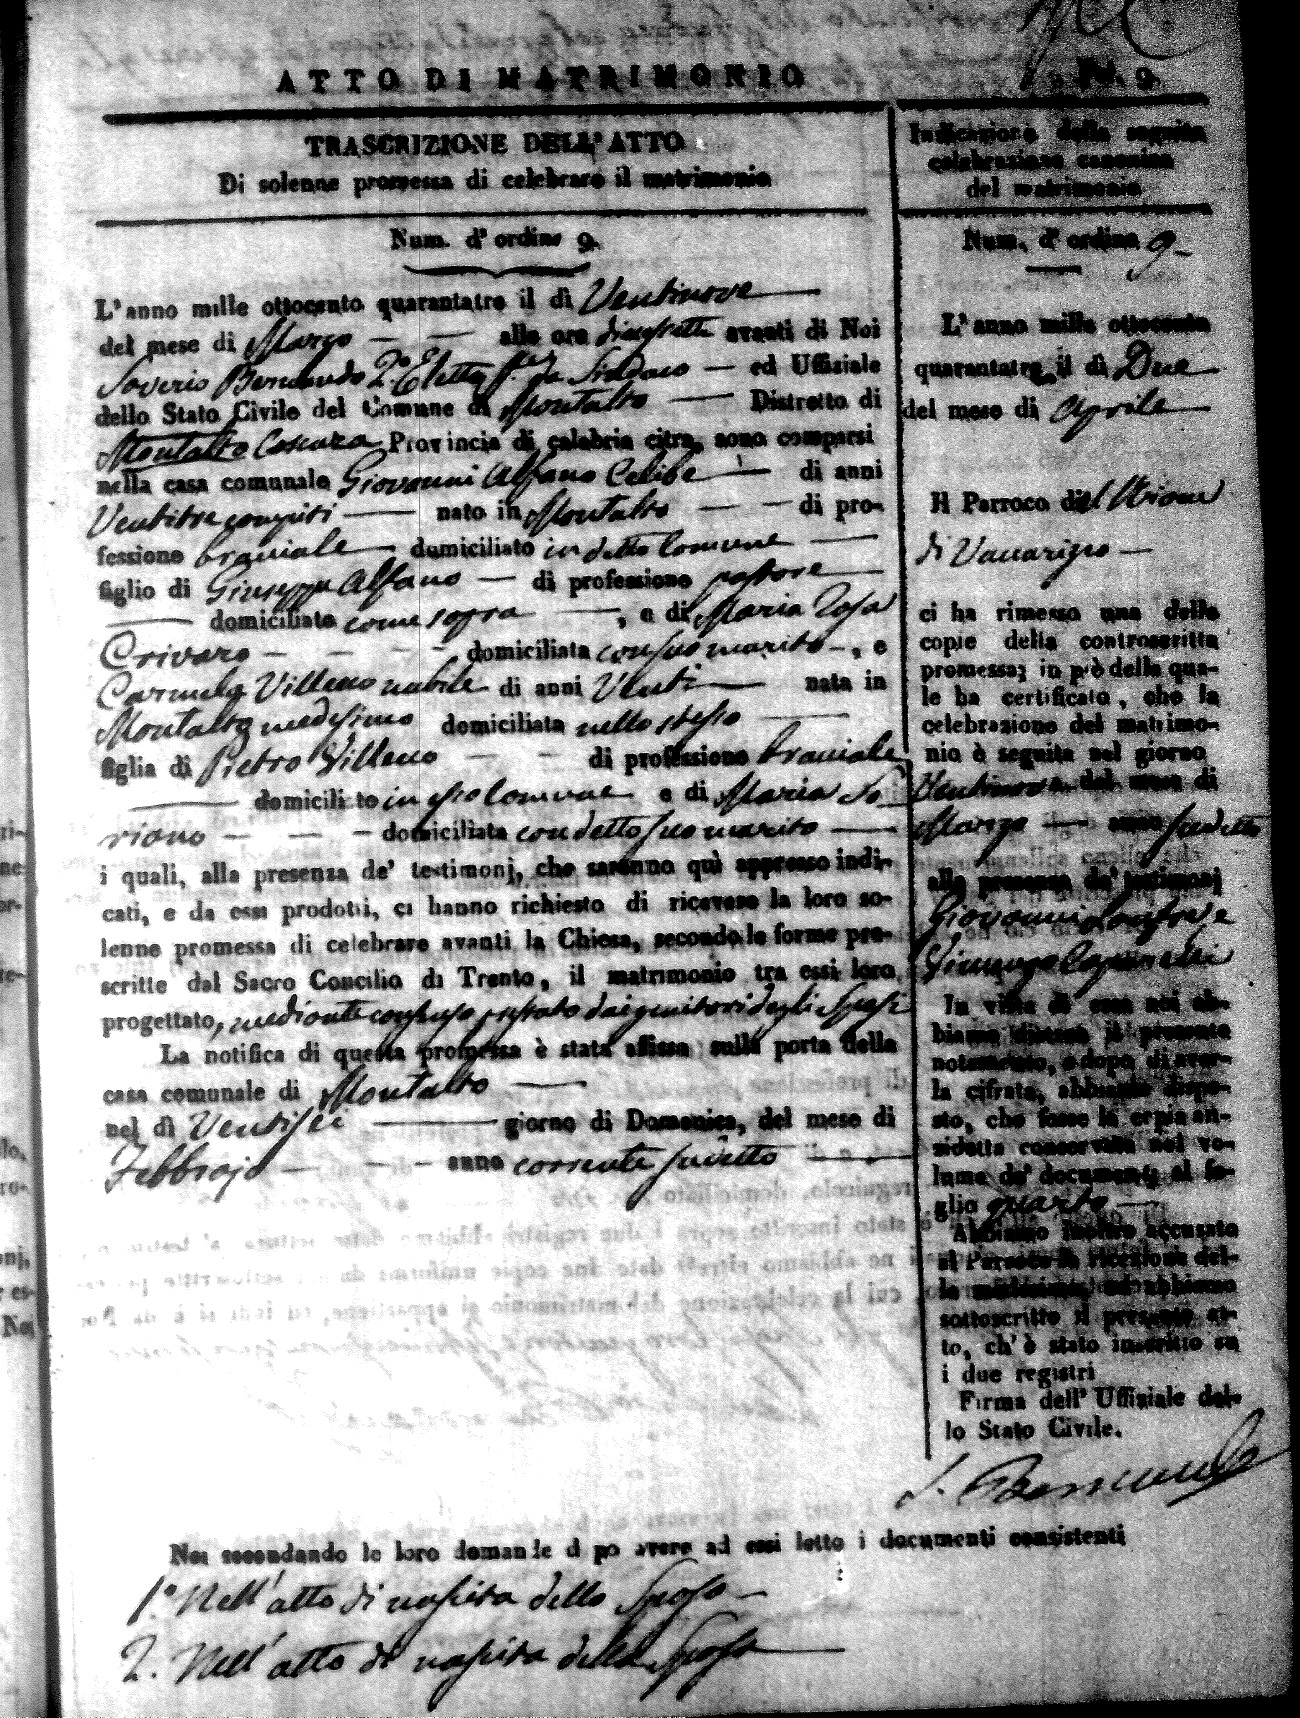 ATTO DI MATRIMONIO
N. 9.
TRASCRIZIONE DELL'ATTO
Di solenne promessa di celebrare il matrimonio
Num. d'ordine 9.
L'anno mille ottocento quarantatre il dì Ventinove
del mese di Marzo — — alle ore avanti di Noi
Saverio Bernaudo 2.° Eletto ff. da Sindaco — ed Uffiziale
dello Stato Civile del Comune di Montalto — Distretto di
Cosenza Provincia di calabria citra, sono comparsi
nella casa comunale Giovanni Alfano Celibe — di anni
Ventitre compiti — nato in Montalto — — di pro-
fessione braciale — domiciliato in detto Comune —
figlio di Giuseppe Alfano — di professione pastore —
— domiciliato come sopra —, e di Maria Rosa
Crivaro — — — — domiciliata con suo marito —, e
Carmela Villeco nubile di anni Venti — nata in
Montalto medesimo domiciliata nello stesso —
figlia di Pietro Villeco — — di professione braciale
— domiciliato in esso Comune e di Maria So-
riano — — — domiciliata con detto suo marito —
i quali, alla presenza de' testimonj, che saranno quì appresso indi-
cati, e da essi prodotti, ci hanno richiesto di ricevere la loro so-
lenne promessa di celebrare avanti la Chiesa, secondo le forme pre-
scritte dal Sacro Concilio di Trento, il matrimonio tra essi loro
progettato, mediante consenso prestato dai genitori degli Sposi
La notifica di questa promessa è stata affissa sulla porta della
casa comunale di Montalto —
nel dì Ventisei — giorno di Domenica, del mese di
Febbrajo — — — anno corrente sudetto —
Indicazione della seguita
celebrazione canonica
del matrimonio
Num. d'ordine 9-
L'anno mille ottocento
quarantatre il dì Due
del mese di Aprile
Il Parroco di
di Vaccarizzo —
ci ha rimesso una delle
copie della controscritta
promessa; in piè della qua-
le ha certificato, che la
celebrazione del matrimo-
nio è seguita nel giorno
Ventinove del mese di
Marzo — anno sudetto
alla presenza de' testimonj
Giovanni e
In vista di essa noi ab-
biamo disteso il presente
notamento, e dopo di aver-
la cifrata, abbiamo dispo-
sto, che fosse la copia an-
zidetta conservata nel vo-
lume de' documenti al fo-
glio quarto —
Abbiamo inoltre accusato
al Parroco la ricezione del-
la medesima, ed abbiamo
sottoscritto il presente at-
to, ch'è stato inscritto su
i due registri
Firma dell'Uffiziale del-
lo Stato Civile.
S. Bernaudo
Noi secondando le loro domande dopo avere ad essi letto i documenti consistenti
1.° Nell'atto di nascita dello Sposo —
2. Nell'atto di nascita della Sposa —